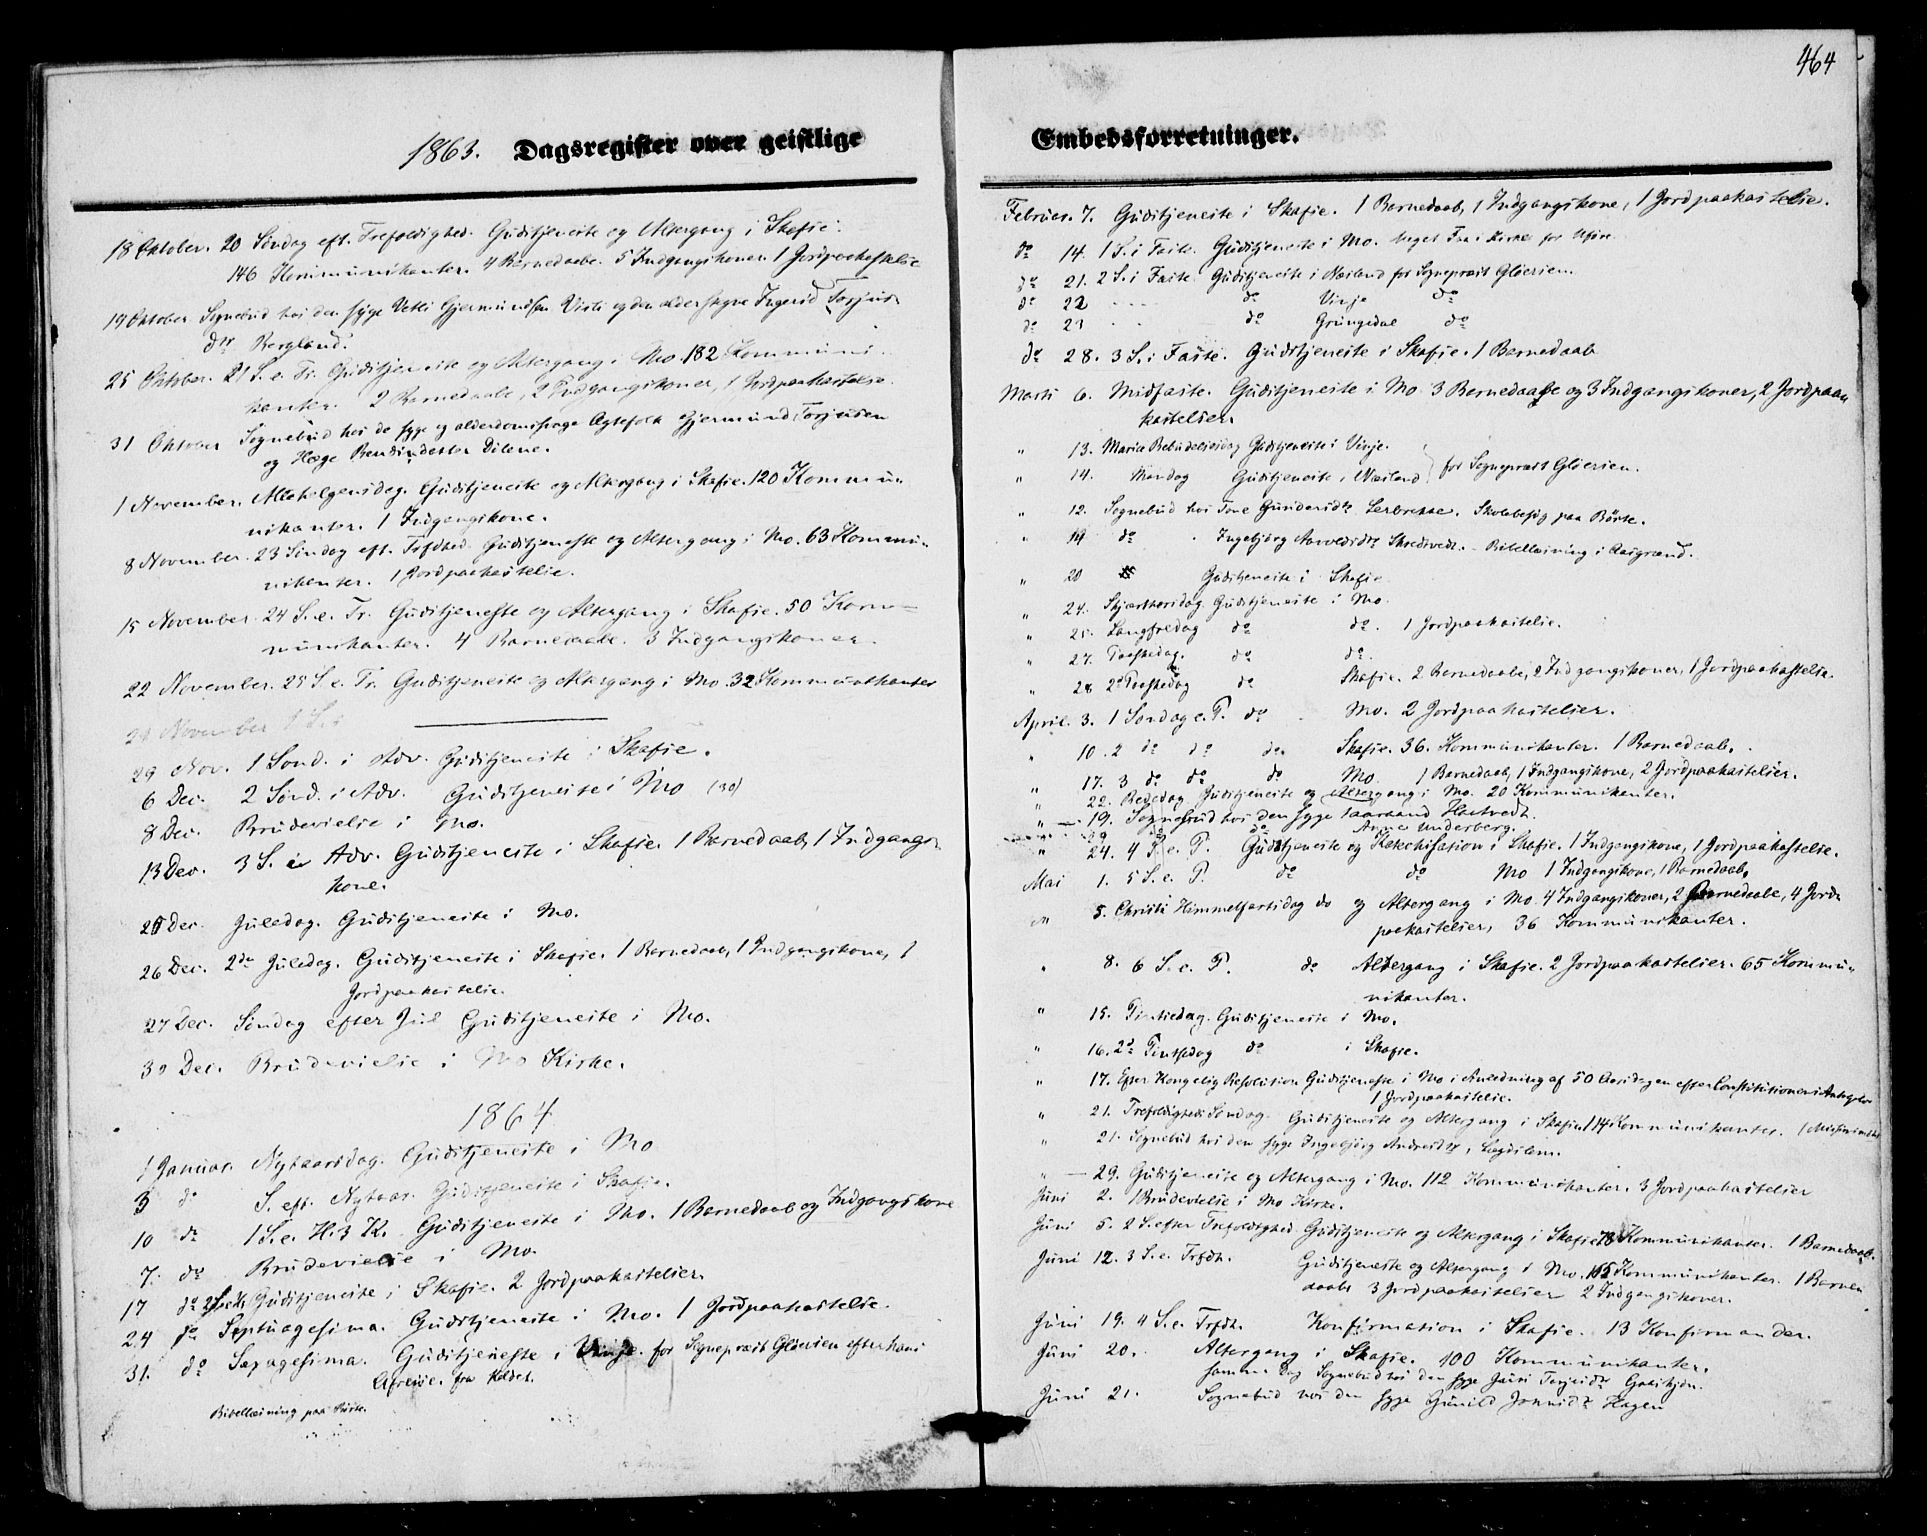 464
1863. Dagsregister over geistlige
18 Oktober. 20 Søndag eft. Trefoldighed. Gudstjeneste og Altergang i Skafse.
146 Kommunikanter. 4 Barnedaabe. 5 Indgangskoner. 1 Jordpaakastelse
19 Oktober. Sognebud hos den syge Vetle Gjermundsen Visti og den
dtr Bergland.
25 Oktober. 21 S. e. Tr. Gudstjeneste og Altergang i Mo. 182 Kommuni-
kanter. 2 Barnedaabe, 2 Indgangskoner, 1 Jordpaakastelse.
31 Oktober Sognebud hos de syge og alderdomssvage Ægtefolk Gjermund Torjusen
og Hæge Dilene.
1 November. Allehelgensdag. Gudstjeneste og Altergang i Skafse. 120 Kommu-
nikanter. 1 Indgangskone.
8 November. 23 Søndag eft. Trfdhed. Gudstjeneste og Altergang i Mo. 63 Kommu-
nikanter. 1 Jordpaakastelse.
15 November. 24 S. e. Tr. Gudstjeneste og Altergang i Skafse. 50 Kom-
munikanter. 4 Barnedaabe. 3 Indgangskoner.
22 November. 25 S. e. Tr. Gudstjeneste og Altergang i Mo. 32 Kommunikanter
29 November 1 S. i
29 Nov. 1 Sønd. i Adv. Gudstjeneste i Skafse.
6 Dec. 2 Sønd. i Adv. Gudstjeneste i Mo
8 Dec. Brudevielse i Mo.
13 Dec. 3 S. i Adv. Gudstjeneste i Skafse. 1 Barnedaab, 1 Indgangs-
kone.
25 Dec. Juledag. Gudstjeneste i Mo.
26 Dec. 2de Juledag. Gudstjeneste i Skafse. 1 Barnedaab, 1 Indgangskone, 1
Jordpaakastelse.
27 Dec. Søndag efter Jul Gudstjeneste i Mo.
30 Dec. Brudevielse i Mo Kirke.
1864
1 Januar. Nytaarsdag. Gudstjeneste i Mo
3 do S. eft. Nytaar. Gudstjeneste i Skafse.
10 do 1 S. e. H. 3 K. Gudstjeneste i Mo. 1 Barnedaab og Indgangskone
7. do Brudevielse i Mo.
17 do Gudstjeneste i Skafse. 2 Jordpaakastelser.
24 do Septuagesima. Gudstjeneste i Mo. 1 Jordpaakastelse.
31. do Sexagesima. Gudstjeneste i Vinje for Sogneprest Gløersen efter hans
Afreise fra Kaldet.
Bibellæsning paa
Embedsforretninger.
Februar. 7. Gudstjeneste i Skafse. 1 Barnedaab, 1 Indgangskone, 1 Jordpaakastelse.
do 14. 1 S. i Faste. Gudstjeneste i Mo. Meget Faa i Kirke for Uføre.
do 21. 2 S. i Faste. Gudstjeneste i Næsland for Sogneprest Gløersen.
do 22 do Vinje do
do 23 do Grungedal do
do 28. 3 S. i Faste. Gudstjeneste i Skafse. 1 Barnedaab
Marts 6. Midfaste. Gudstjeneste i Mo 3 Barnedaabe og 3 Indgangskoner, 2 Jordpaa-
kastelser
" 13. Mariæ Bebudelsesdag Gudstjeneste i Vinje.
" 14. Mandag Gudstjeneste i Næsland for Sogneprest Gløersen.
" 12. Sognebud hos Tone Gundersdtr Lerbrekke. Skolebesøg paa Børte.
" 19 do Ingebjørg Aavedsdtr Skredvedt. - Bibellæsning i Aasgrænd.
" 20 Gudstjeneste i Skafse
" 24. Skjærthorsdag Gudstjeneste i Mo.
" 25. Langfredag do do. 1 Jordpaakastelse.
" 27. Paaskedag. do do.
" 28 2d Paaskedag do Skafse. 2 Barnedaabe, 2 Indgangskoner, 1 Jordpaakastelse.
April. 3. 1 Søndag e. P. do Mo. 2 Jordpaakastelser.
" 10. 2 do do do. Skafse. 36. Kommunikanter. 1 Barnedaab.
" 17. 3 do do do Mo. 1 Barnedaab, 1 Indgangskone, 2 Jordpaakastelser.
" 22. Bededag Gudstjeneste og Altergang i Mo. 20 Kommunikanter.
" 19. Sognebud hos den syge Taaraand Hustvedt.
29 do Anne Underberg.
" 24. 4 S. e. P. Gudstjeneste og Katechisation i Skafse. 1 Indgangskone, 1 Jordpaakastelse.
Mai 1. 5 S. e. P. do do Mo 1 Indgangskone, 1 Barnedaab.
" 5. Christi Himmelfartsdag do og Altergang i Mo. 4 Indgangskoner, 2 Barnedaabe, 4 Jord-
paakastelser, 36 Kommunikanter.
" 8. 6 S. e. P. do Altergang i Skafse. 2 Jordpaakastelser. 65 Kommu-
nikanter.
" 15. Pintsedag. Gudstjeneste i Mo.
" 16. 2d Pintsedag do i Skafse.
" 17. Efter Kongelig Resolution Gudstjeneste i Mo i Anledning af 50 Aarsdagen efter Constitutionens Antagelse
1 Jordpaakastelse.
" 21. Trefoldigheds Søndag. Gudstjeneste og Altergang i Skafse. 114 Kommunikanter.
" 21. Sognebud hos den syge Ingebjørg Andresdtr, Lægdslem.
" 29. Gudstjeneste og Altergang i Mo. 112 Kommunikanter. 3 Jordpaakastelser
Juni 2. 1 Brudevielse i Mo Kirke.
Juni 5. 2 S. efter Trefoldighed Gudstjeneste og Altergang i Skafse. 78 Kommunikanter. 1 Barnedaab.
Juni 12. 3 S. e. Trfdh. Gudstjeneste og Altergang i Mo. Kommunikanter. 1 Barne-
daab 3 Jordpaakastelser 2 Indgangskoner.
Juni 19. 4 S. e. Trfdh. Konfirmation i Skafse. 13 Konfirmander.
Juni 20. Altergang i Skafse. 100 Kommunikanter.
samme Dag Sognebud hos den syge
Juni 21. Sognebud hos den syge Gunild Hagen